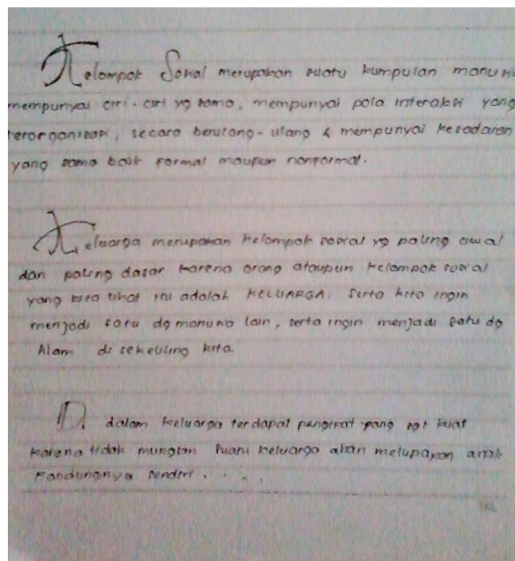 Kelompok Sosial merupakan suatu kumpulan manusi
mempunyai ciri-ciri yg sama, mempunyai pola interaksi yang
terorganisasi, secara berulang-ulang & mempunyai kesadaran
yang sama baik formal maupun nonformal.
Keluarga merupakan kelompok sosial yg paling awal
dan paling dasar karena orang ataupun kelompok sosial
yang kita lihat itu adalah KELUARGA. Serta kita ingin
menjadi satu dg manusia lain, serta ingin menjadi satu dg
Alam di sekeliling kita.
Di dalam keluarga terdapat pengikat yang sgt kuat
karena tidak mungkin suatu keluarga akan melupakan anak
kandungnya sendiri . . . .